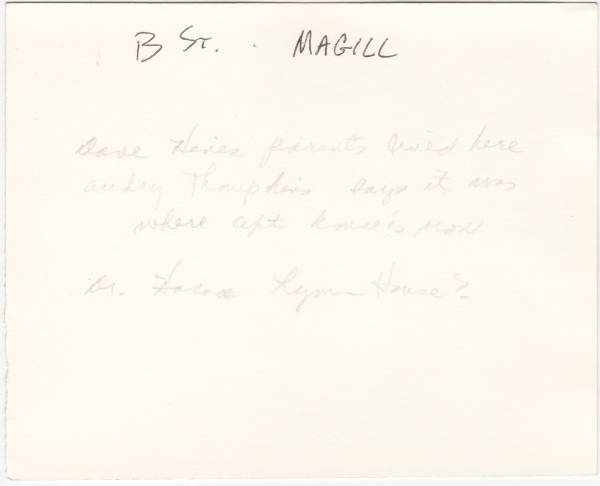 B St. . MAGILL
Dave Hanes parents lived here
Audrey Thompkins says it was
where apt house is now
Dr. Lyman House?